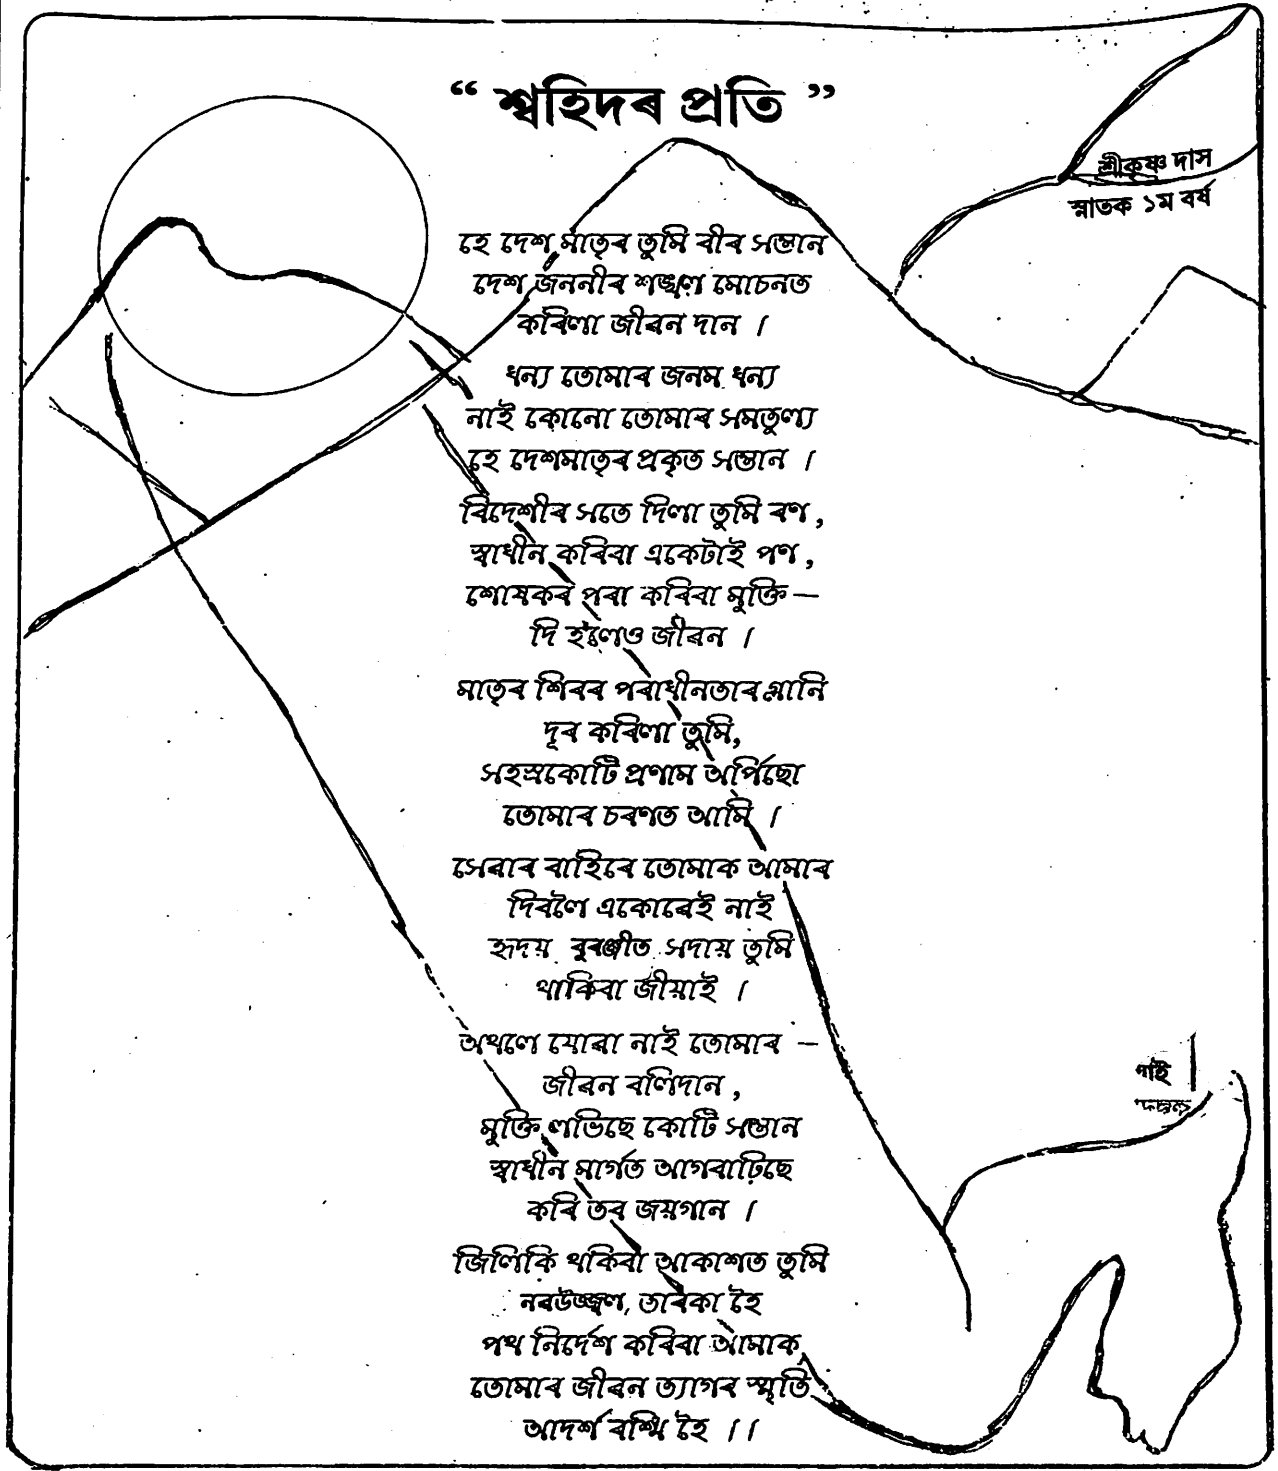 “ শ্বহিদৰ প্ৰতি ”
শ্ৰীকৃষ্ণ দাস
স্নাতক ১ম বৰ্ষ
হে দেশ মাতৃৰ তুমি বীৰ সন্তান
দেশ জননীৰ শৃঙ্খল মোচনত
কৰিলা জীৱন দান ।
ধন্য তোমাৰ জনম ধন্য
নাই কোনো তোমাৰ সমতুল্য
হে দেশমাতৃৰ প্ৰকৃত সন্তান ।
বিদেশীৰ সতে দিলা তুমি ৰণ,
স্বাধীন কৰিবা একেটাই পণ,
শোষকৰ পৰা কৰিবা মুক্তি—
দি হ'লেও জীৱন ।
মাতৃৰ শিৰৰ পৰাধীনতাৰ গ্লানি
দূৰ কৰিলা তুমি,
সহস্ৰকোটি প্ৰণাম অৰ্পিছো
তোমাৰ চৰণত আমি ।
সেৱাৰ বাহিৰে তোমাক আমাৰ
দিবলৈ একোৱেই নাই
হৃদয় বুৰঞ্জীত সদায় তুমি
থাকিবা জীয়াই ।
অথলে যোৱা নাই তোমাৰ —
জীৱন বলিদান,
মুক্তি লভিছে কোটি সন্তান
স্বাধীন মাৰ্গত আগবাঢ়িছে
কৰি তব জয়গান ।
জিলিকি থকিবা আকাশত তুমি
নৱউজ্জ্বল, তাৰকা হৈ
পথ নিৰ্দেশ কৰিবা আমাক
তোমাৰ জীৱন ত্যাগৰ স্মৃতি
আদৰ্শ ৰশ্মি হৈ ।।